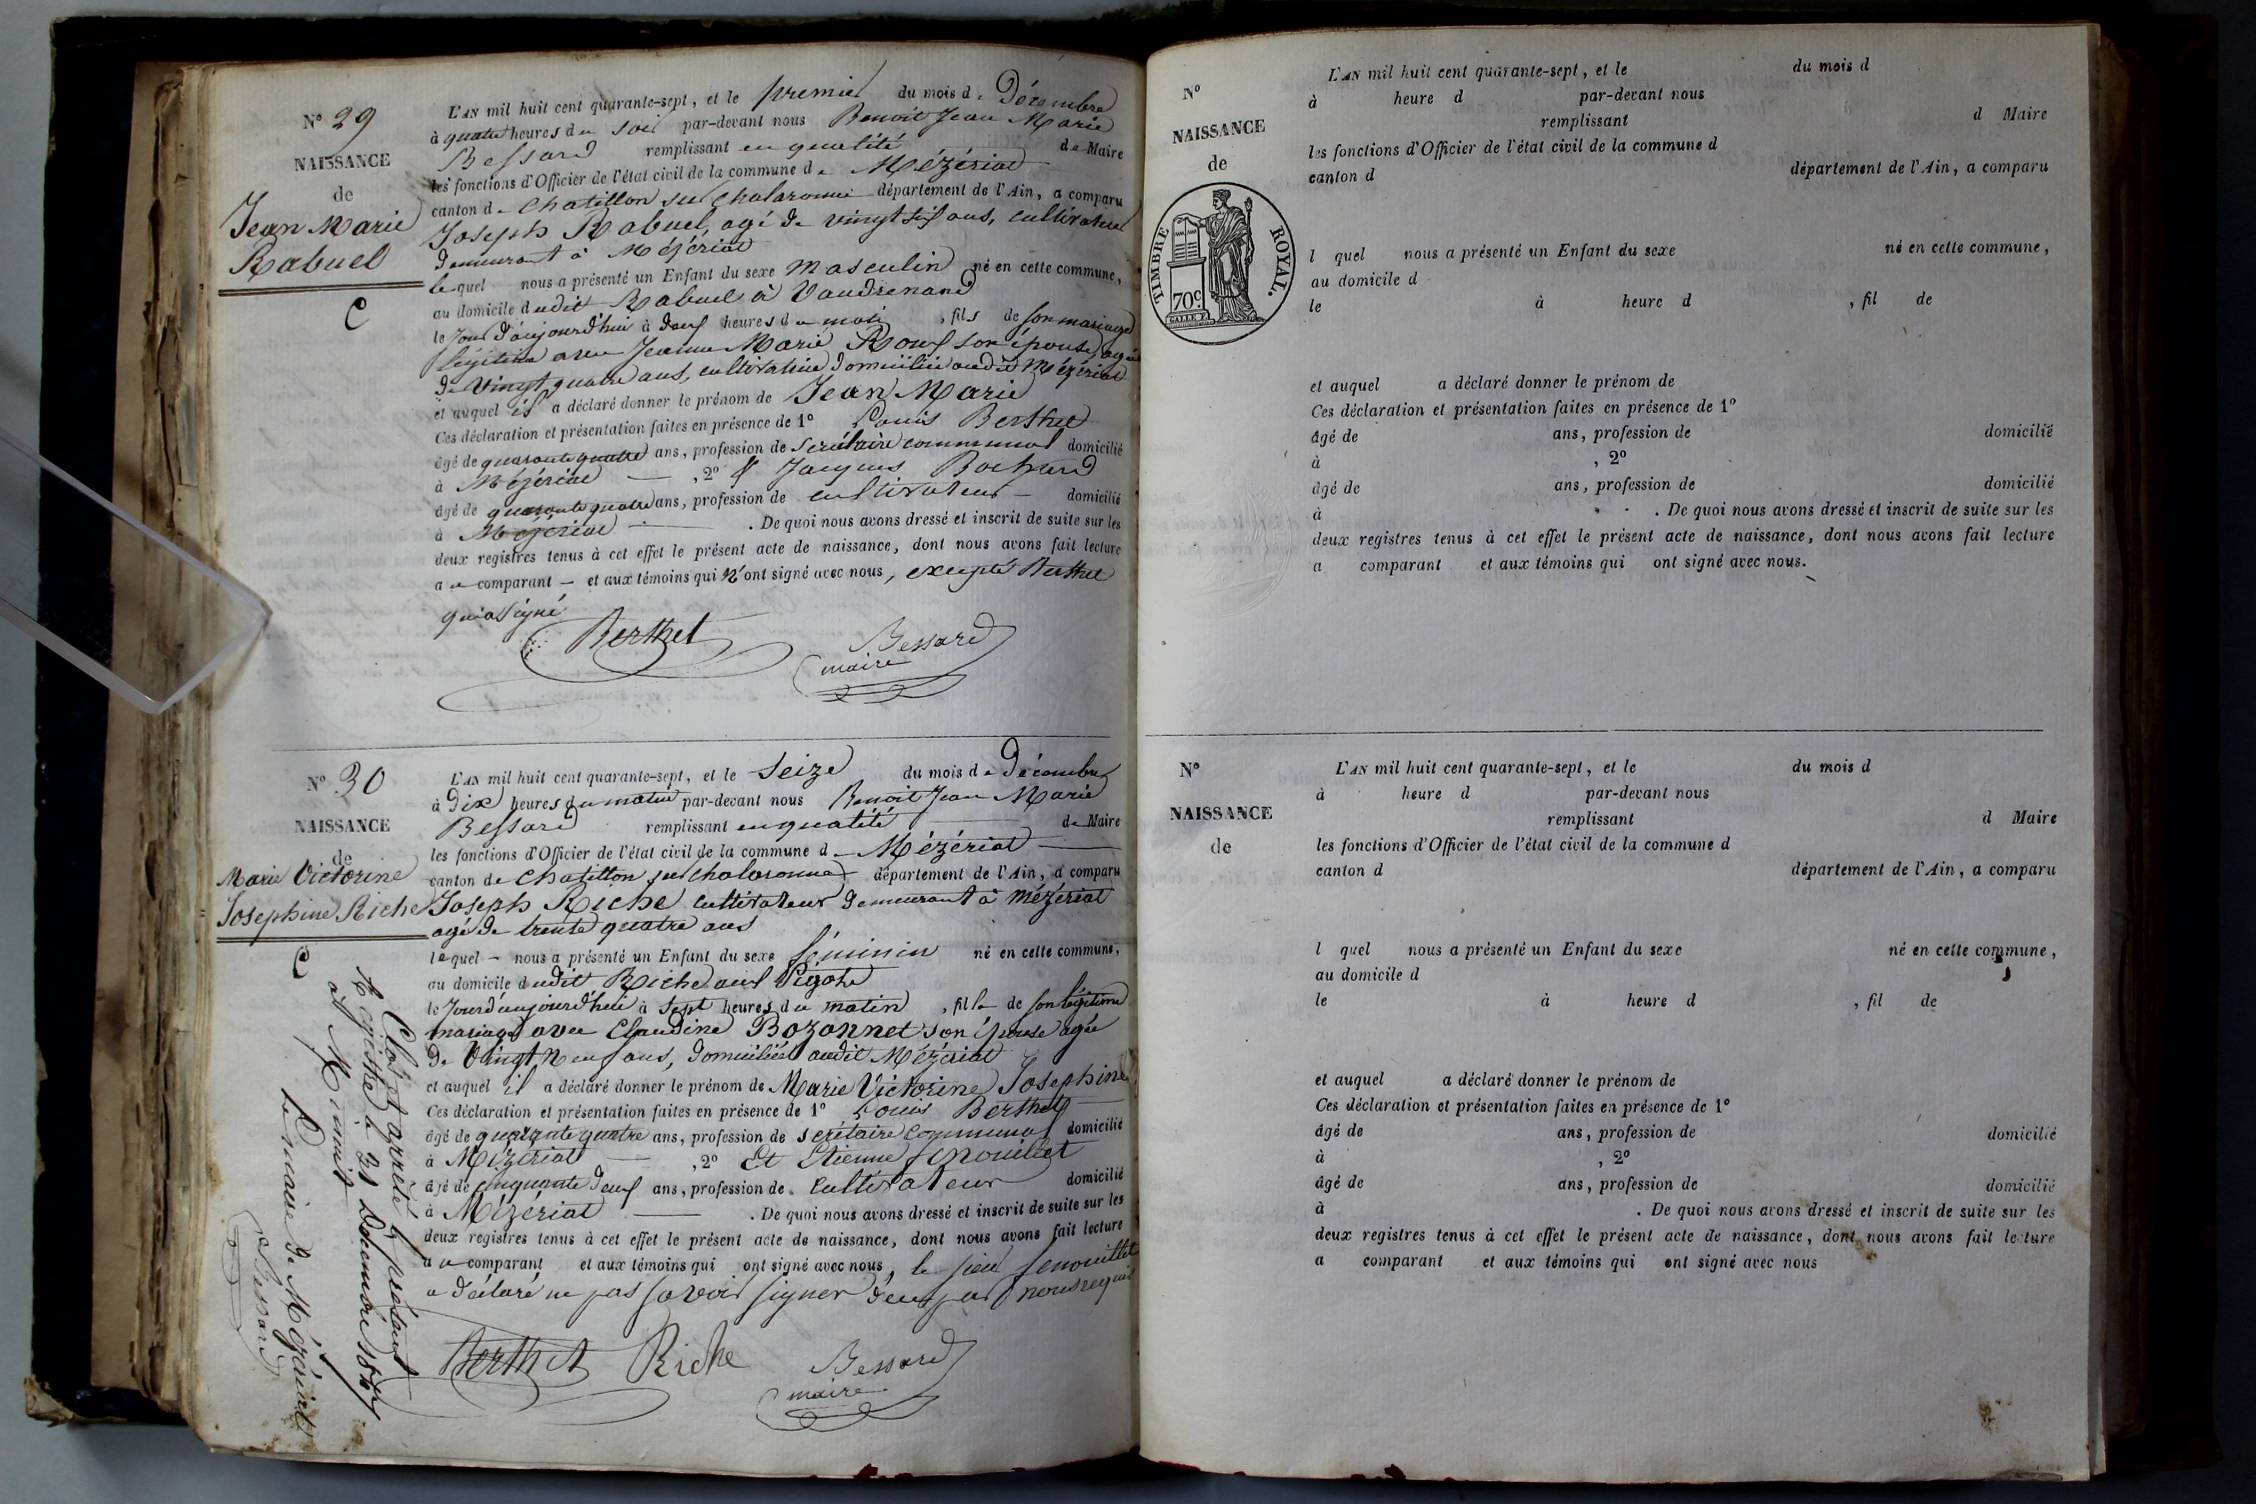 N° 29
NAISSANCE
de
Jean Marie
Rabuel
C
L'AN mil huit cent quarante-sept, et le premier du mois de Décembre
à quatre heures du soir par-devant nous Benoit Jean Marie
Bessard remplissant en qualité de Maire
les fonctions d'Officier de l'état civil de la commune de Mézériat
canton de Chatillon sur Chalaronne département de l'Ain, a comparu
Joseph Rabuel, agé de vingt six ans, cultivateur
demeurant à Mézériat
lequel nous a présenté un Enfant du sexe masculin né en cette commune,
au domicile dudit Rabuel à Vaudrenand
le Jour d'aujourd'hui à deux heures du matin, fils de son mariage
légitime avec Jeanne Marie Roux son épouse, agée
de vingt quatre ans, cultivatrice domiciliée audit Mézériat
et auquel il a déclaré donner le prénom de Jean Marie
Ces déclaration et présentation faites en présence de 1° Louis Berthet
âgé de quarante quatre ans, profession de secrétaire communal domicilié
à Mézériat — , 2° Jacques Bochard
âgé de quarante quatre ans, profession de cultivateur — domicilié
à Mézériat — . De quoi nous avons dressé et inscrit de suite sur les
deux registres tenus à cet effet le présent acte de naissance, dont nous avons fait lecture
au comparant — et aux témoins qui n'ont signé avec nous, excepté Berthet
qui a signé
Berthet
Bessard
maire
N° 30
NAISSANCE
de
Marie Victorine
Josephine Riche
C
L'AN mil huit cent quarante-sept, et le seize du mois de Décembre
à dix heures du matin par-devant nous Benoit Jean Marie
Bessard remplissant en qualité de Maire
les fonctions d'Officier de l'état civil de la commune de Mézériat
canton de Chatillon sur Chalaronne département de l'Ain, a comparu
Joseph Riche cultivateur demeurant à Mézériat
agé de trente quatre ans
lequel — nous a présenté un Enfant du sexe féminin né en cette commune,
au domicile dudit Riche aux
le Jour d'aujourd'hui à sept heures du matin, fille de son légitime
mariage avec Claudine Bozonnet son épouse agée
de vingt neuf ans, domiciliée audit Mézériat
et auquel il a déclaré donner le prénom de Marie Victorine Josephine
Ces déclaration et présentation faites en présence de 1° Louis Berthet
âgé de quarante quatre ans, profession de secrétaire communal domicilié
à Mézériat — , 2° Et Etienne Fenouillet
âgé de cinquante deux ans, profession de cultivateur domicilié
à Mézériat — . De quoi nous avons dressé et inscrit de suite sur les
deux registres tenus à cet effet le présent acte de naissance, dont nous avons fait lecture
au comparant et aux témoins qui ont signé avec nous, le sieur Fenouillet
a déclaré ne pas savoir signer de ce par nous requis
Berthet Riche Bessard
maire
Clos et arrêté le présent
Registre le 31 Décembre 1847
à Minuit
Le maire de Mézériat
Bessard
N°
NAISSANCE
de
TIMBRE ROYAL.
70c
L'AN mil huit cent quarante-sept, et le du mois d
à heure d par-devant nous
remplissant d Maire
les fonctions d'Officier de l'état civil de la commune d
canton d département de l'Ain, a comparu
l quel nous a présenté un Enfant du sexe né en cette commune,
au domicile d
le à heure d , fil de
et auquel a déclaré donner le prénom de
Ces déclaration et présentation faites en présence de 1°
âgé de ans, profession de domicilié
à , 2°
âgé de ans, profession de domicilié
à . De quoi nous avons dressé et inscrit de suite sur les
deux registres tenus à cet effet le présent acte de naissance, dont nous avons fait lecture
a comparant et aux témoins qui ont signé avec nous.
N°
NAISSANCE
de
L'AN mil huit cent quarante-sept, et le du mois d
à heure d par-devant nous
remplissant d Maire
les fonctions d'Officier de l'état civil de la commune d
canton d département de l'Ain, a comparu
l quel nous a présenté un Enfant du sexe né en cette commune,
au domicile d
le à heure d , fil de
et auquel a déclaré donner le prénom de
Ces déclaration et présentation faites en présence de 1°
âgé de ans, profession de domicilié
à , 2°
âgé de ans, profession de domicilié
à . De quoi nous avons dressé et inscrit de suite sur les
deux registres tenus à cet effet le présent acte de naissance, dont nous avons fait lecture
a comparant et aux témoins qui ont signé avec nous